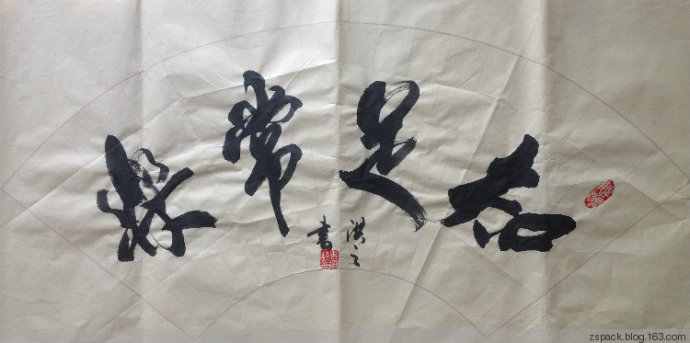 知足常樂
洪之
書
zspack.blog.163.com